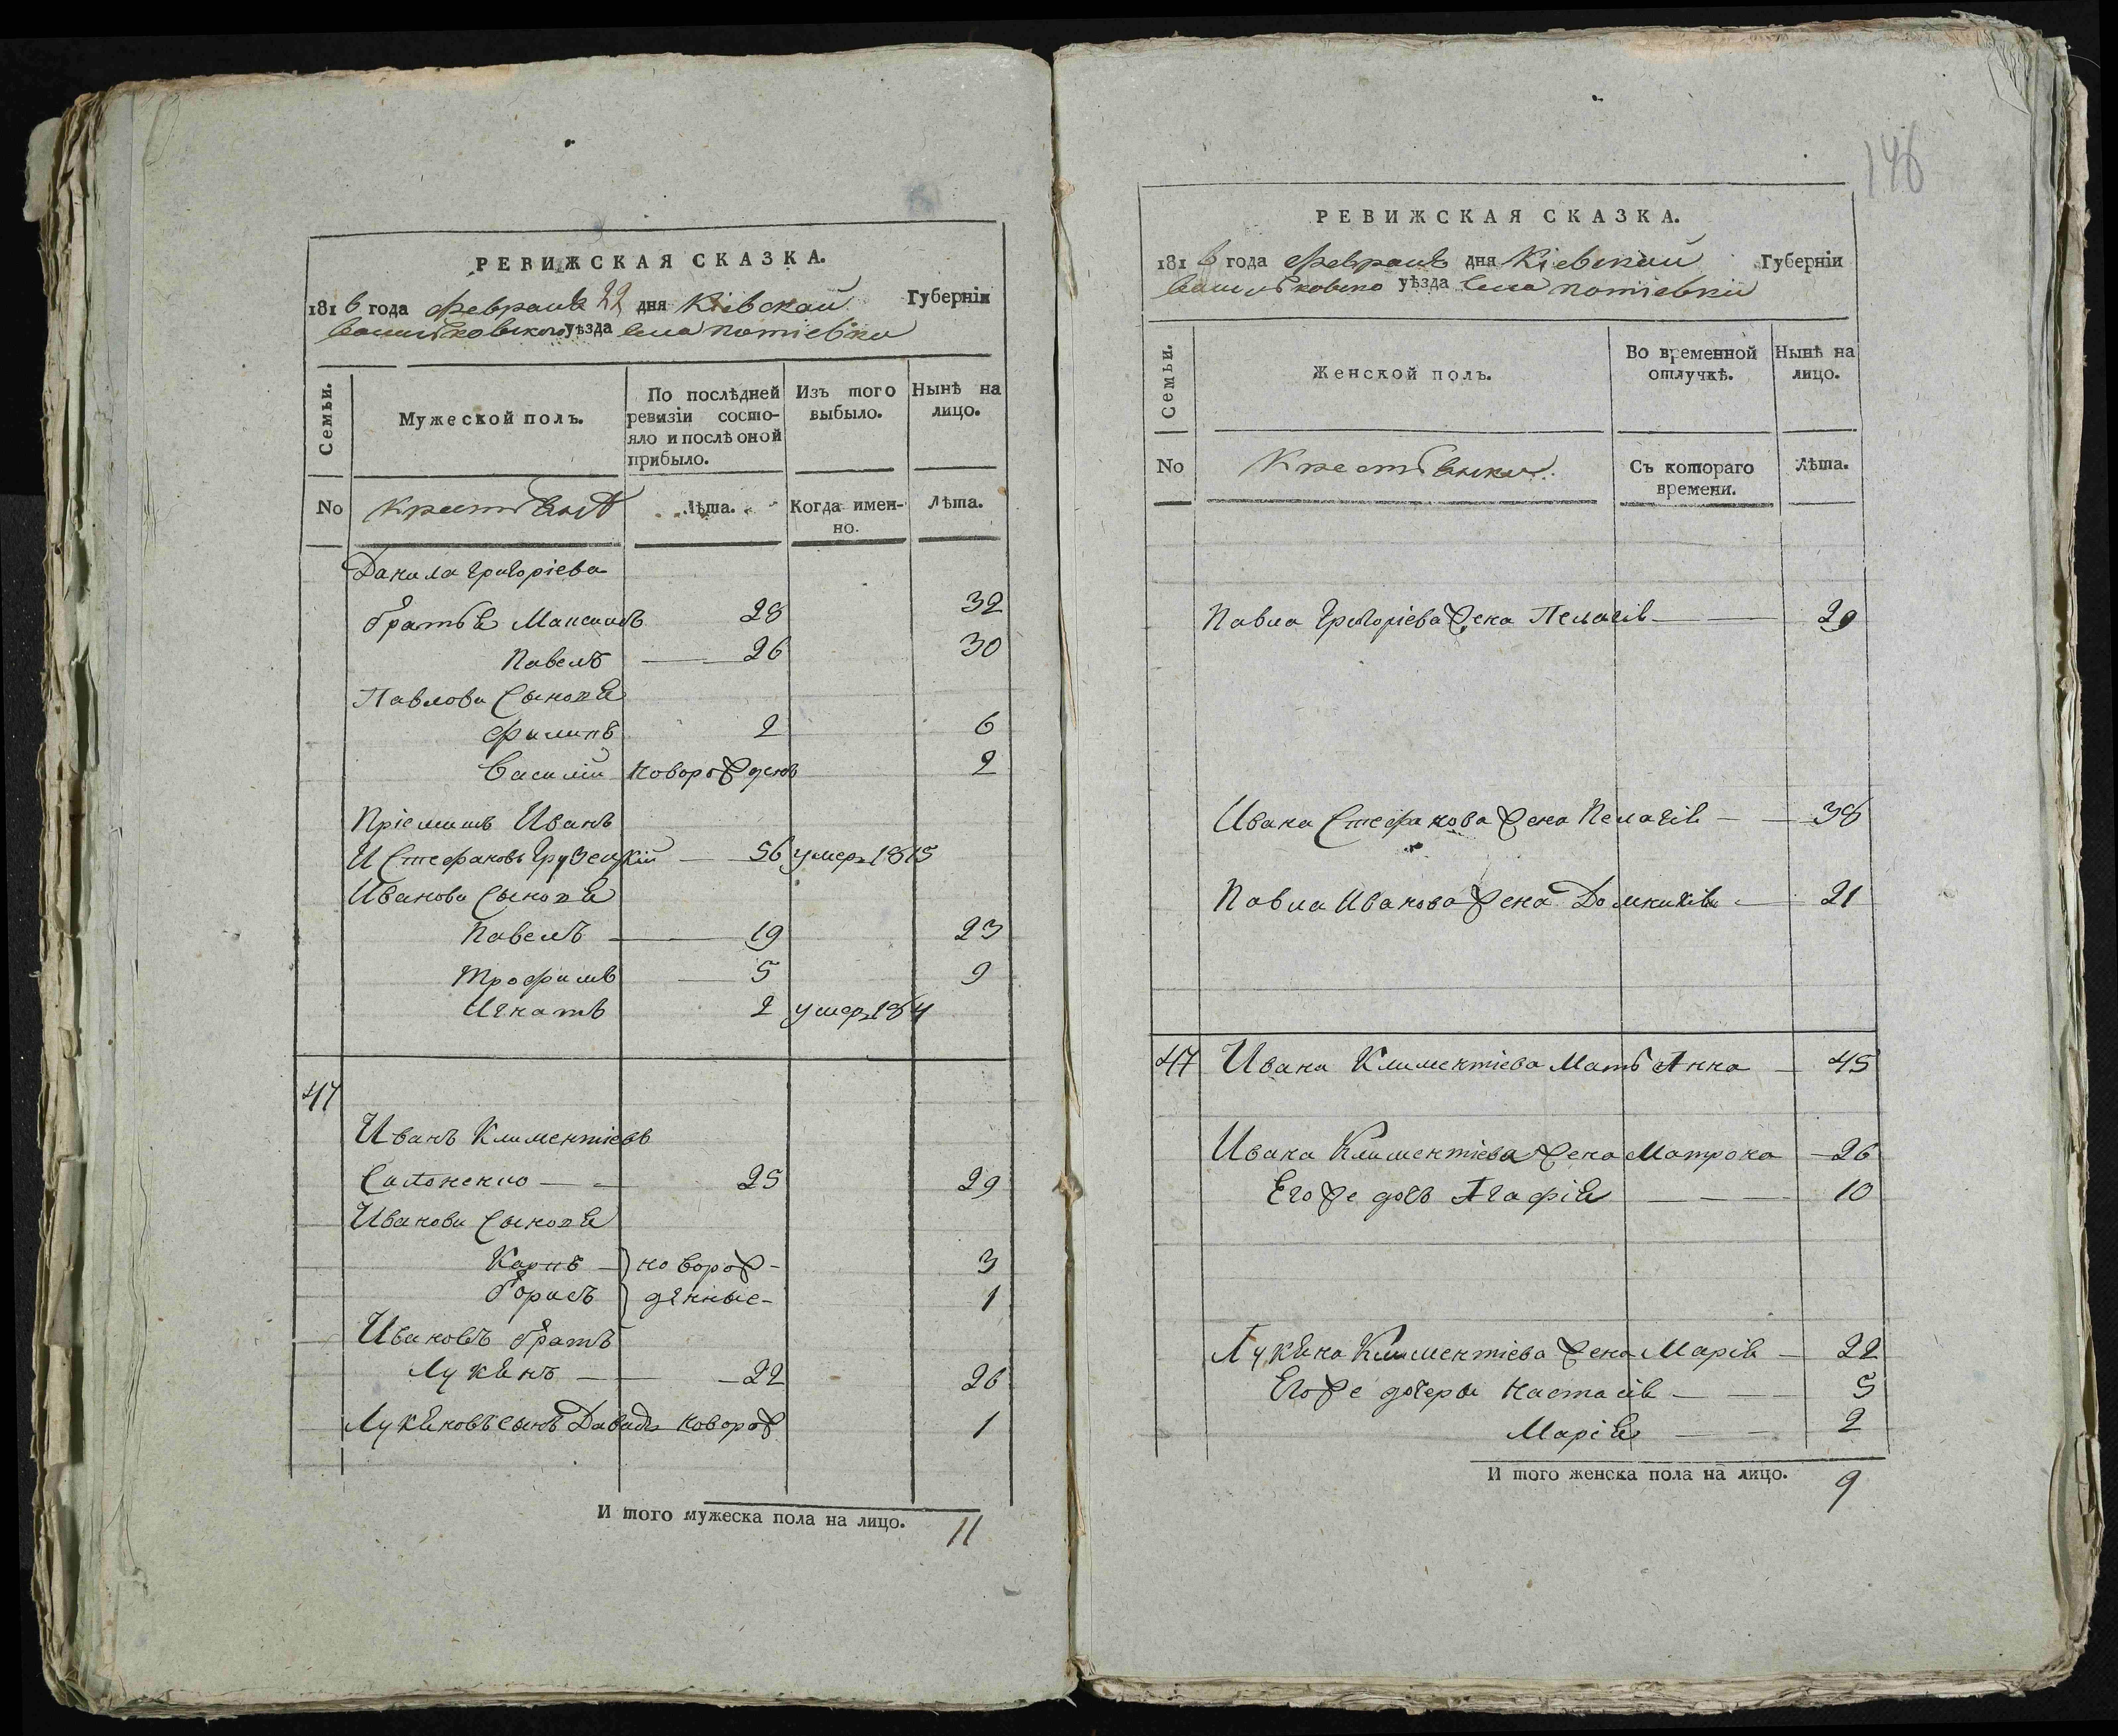 РЕВИЖСКАЯ СКАЗКА.
1816 года февраля 22 дня Кіевской Губерніи
Васильковского уѣзда села потіевки
Семьи.
Мужеской полъ.
По послѣдней ревизіи состояло и послѣ оной прибыло.
Изъ того выбыло.
Нынѣ на лицо.
No
крестьяне
Лѣта.
Когда именно.
Лѣта.
Данила Григоріева
братья Максимъ 28 32
Павелъ 26 30
Павлови Сыновя
Филипъ 2 6
Василій новорожденъ 2
Пріемишъ Иванъ
Стефановъ 56 умеръ 1815
Иванови Сыновя
Павелъ 19 23
Трофимъ 5 9
Игнатъ 2 умеръ 1814
47
Иванъ Климентіевъ
25 29
Иванови Сыновя
Карпъ } новорож- 3
борисъ } денные 1
Ивановъ братъ
Лукянъ 22 26
Лукяновъ сынъ Давидъ новорож 1
И того мужеска пола на лицо. 11
146
РЕВИЖСКАЯ СКАЗКА.
1816 года февраля дня Кіевской Губерніи
Васильковско уѣзда Села потіевки
Семьи.
Женской полъ.
Во временной отлучкѣ.
Нынѣ на лицо.
No
Крестьянки.
Съ котораго времени.
Лѣта.
Павла Григоріева жена Пелагія 29
Ивана Стефанова жена Пелагія 38
Павла Иванова жена Домникія 21
47 Ивана Климентіева Мать Анна 45
Ивана Климентіева жена Матрона 26
Его же дочь Агафія 10
Лукяна Климентіева жена Марія 22
Его же дочери Настасія 5
Марія 2
И того женска пола на лицо. 9